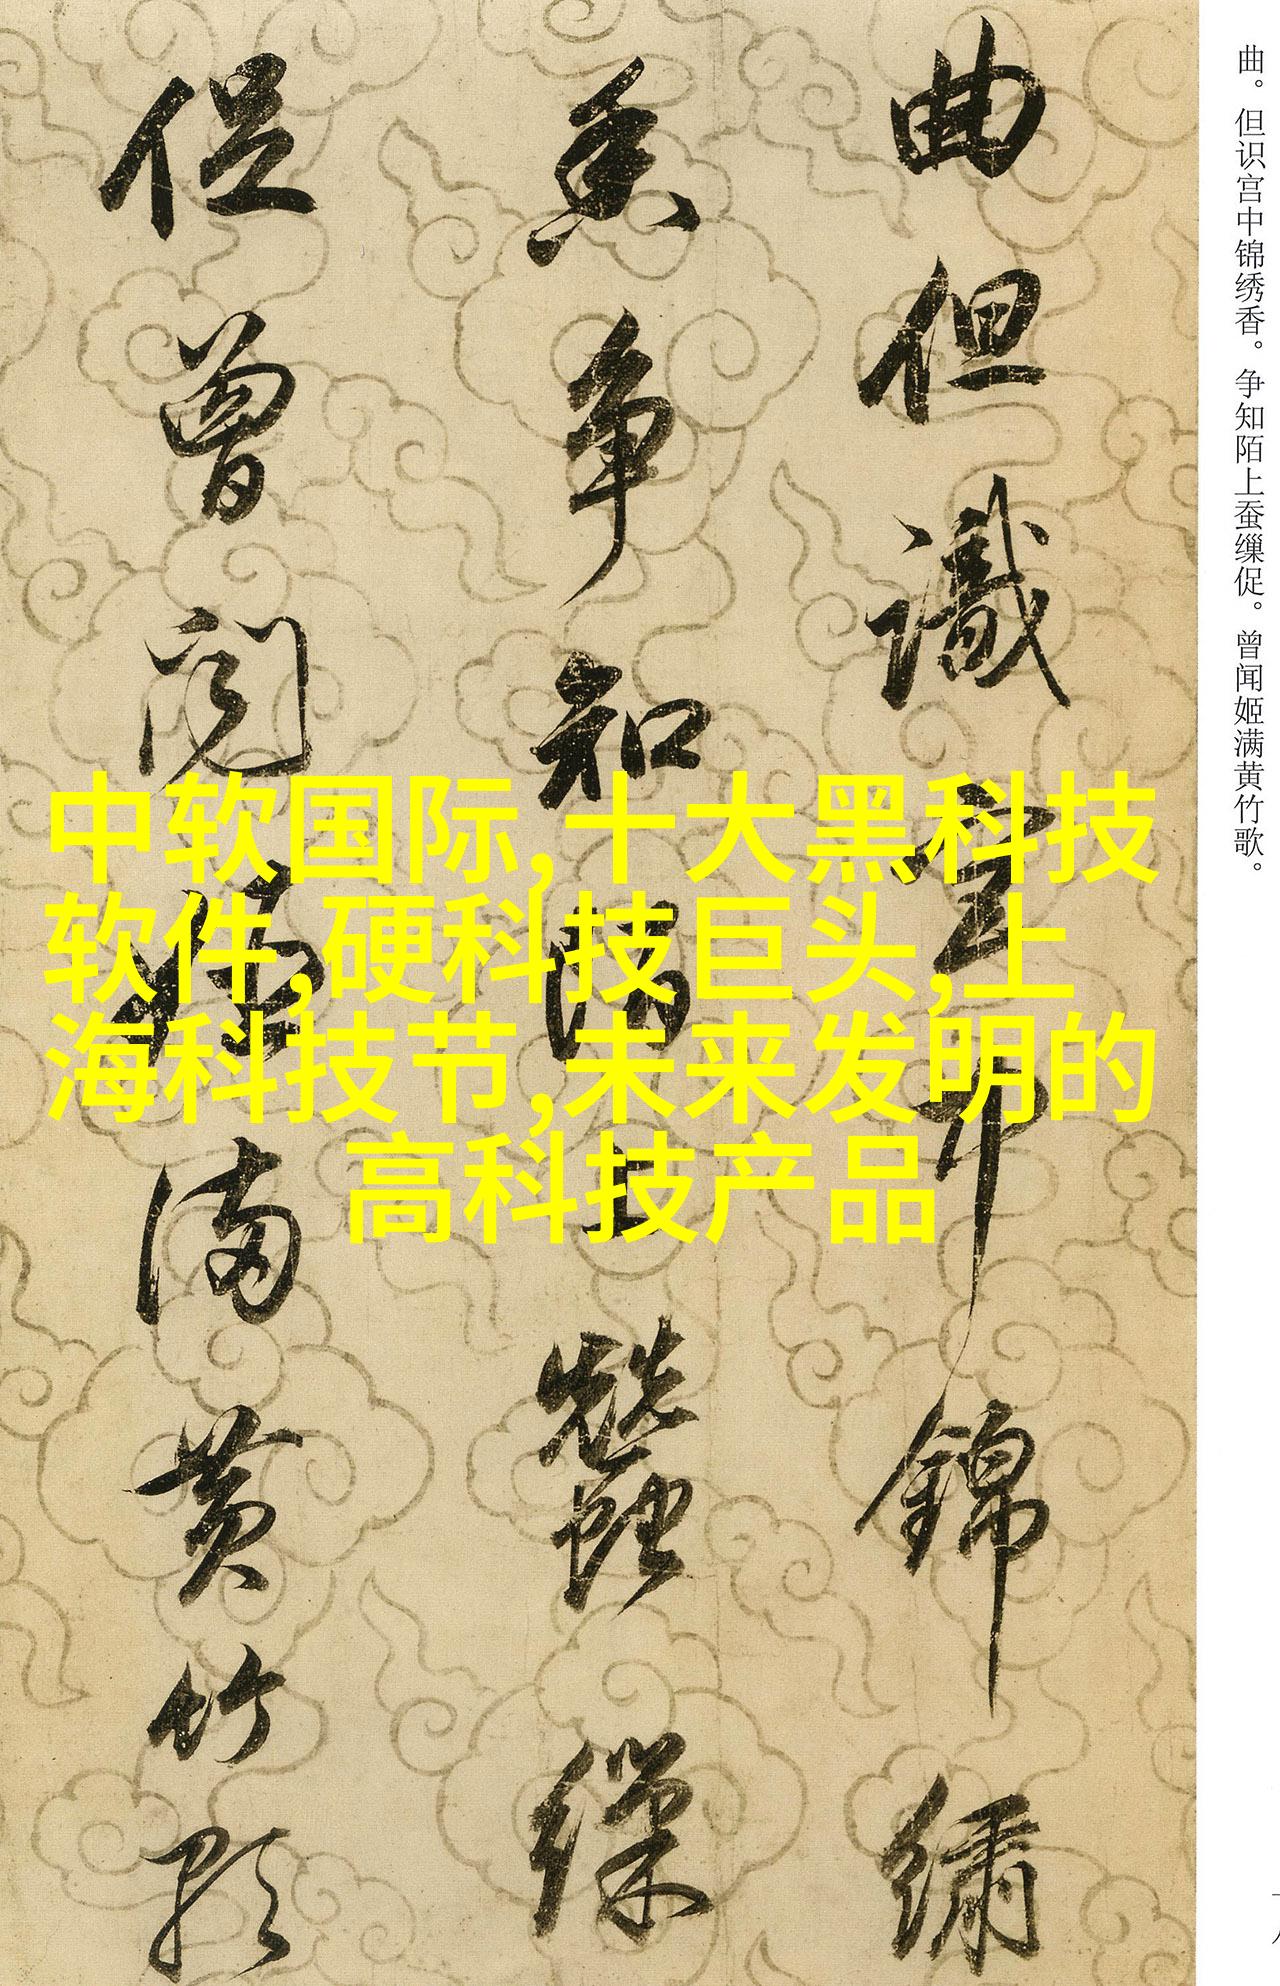 曲但識宮中錦繡
香争知陌上蠶繅
促曾闻姬满黄竹歌
曲。但识宫中锦绣香。争知陌上蚕缫促。曾闻姬满黄竹歌。
中软国际,十大黑科技
软件,硬科技巨头,上
海科技节,未来发明的
高科技产品